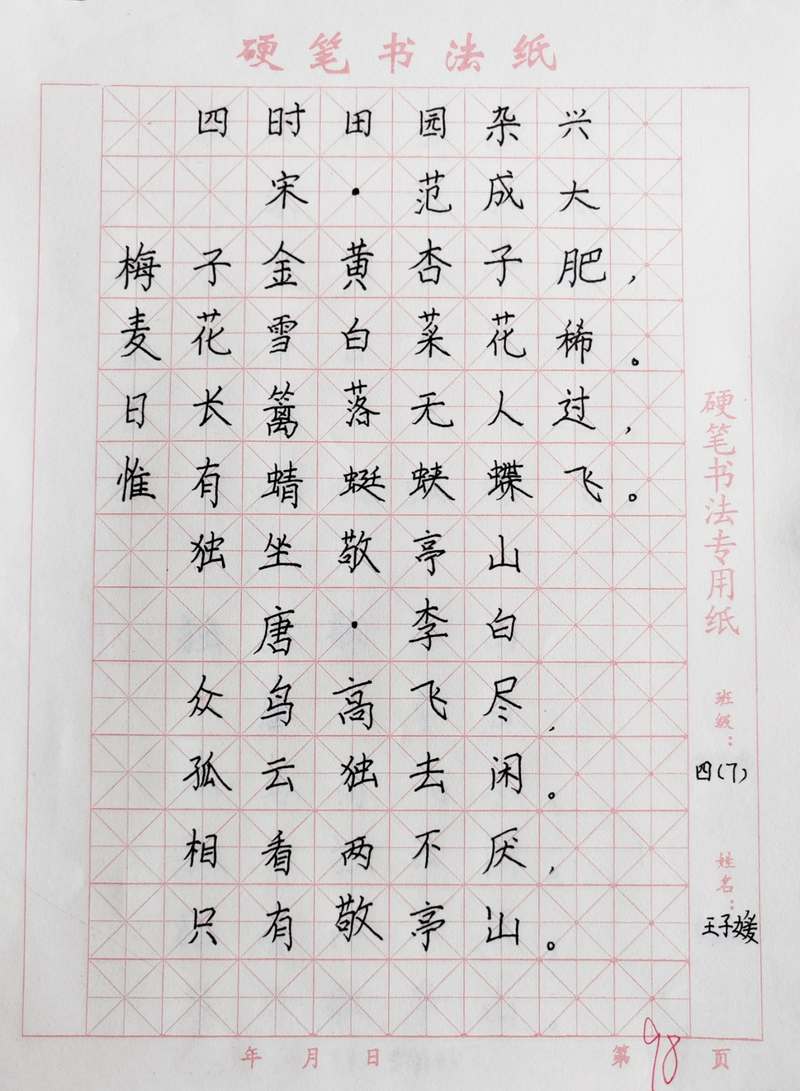 硬笔书法纸
四时田园杂兴
宋·范成大
梅子金黄杏子肥，
麦花雪白菜花稀。
日长篱落无人过，
惟有蜻蜓蛱蝶飞。
独坐敬亭山
唐·李白
众鸟高飞尽，
孤云独去闲。
相看两不厌，
只有敬亭山。
硬笔书法专用纸
班级：
四(7)
姓名：
王子媛
年 月 日
第 98 页